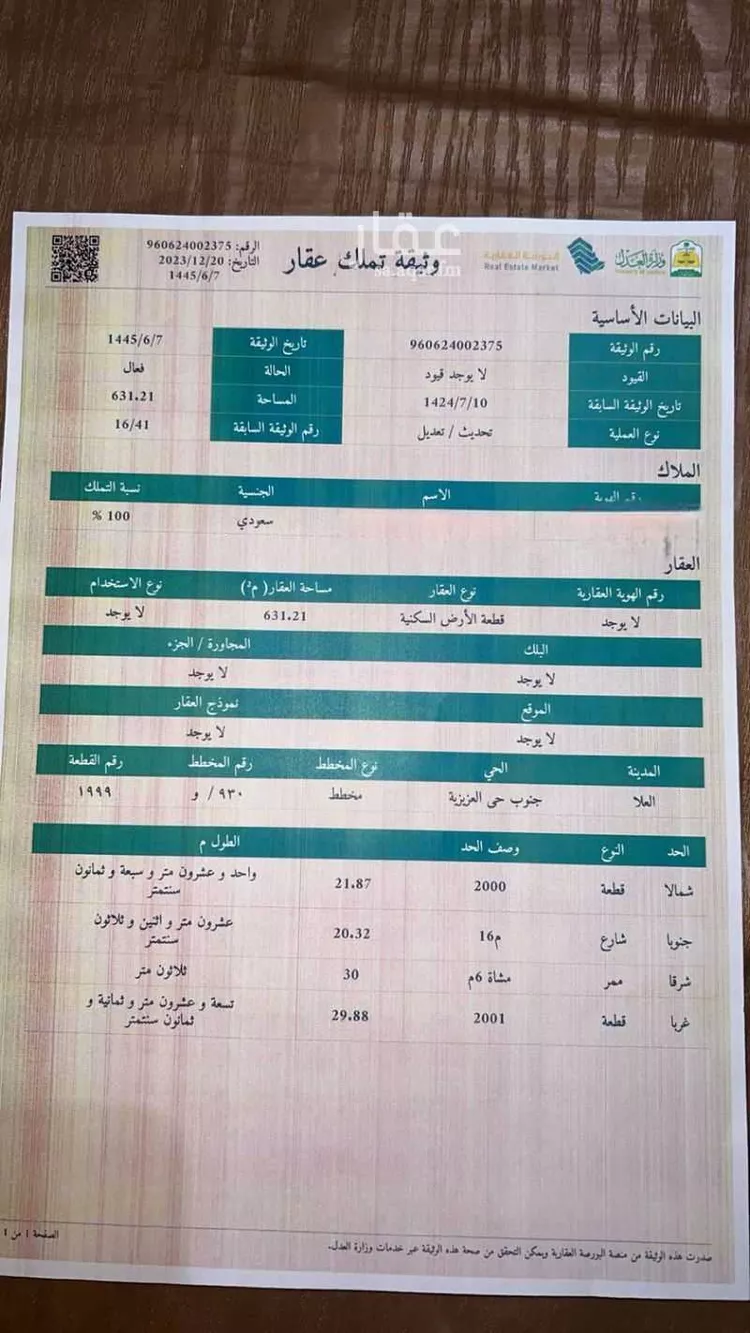 وزارة العدل
Ministry of Justice
البورصة العقارية
Real Estate Market
عقار
sa.aqar.fm
وثيقة تملك عقار
الرقم: 960624002375
التاريخ: 2023/12/20
1445/6/7
البيانات الأساسية
رقم الوثيقة 960624002375 تاريخ الوثيقة 1445/6/7
القيود لا يوجد قيود الحالة فعال
تاريخ الوثيقة السابقة 1424/7/10 المساحة 631.21
نوع العملية تحديث / تعديل رقم الوثيقة السابقة 16/41
الملاك
رقم الهوية الاسم الجنسية نسبة التملك
سعودي 100 %
العقار
رقم الهوية العقارية نوع العقار مساحة العقار( م²) نوع الاستخدام
لا يوجد قطعة الأرض السكنية 631.21 لا يوجد
البلك المجاورة / الجزء
لا يوجد لا يوجد
الموقع نموذج العقار
لا يوجد لا يوجد
المدينة الحي نوع المخطط رقم المخطط رقم القطعة
العلا جنوب حى العزيزية مخطط ٩٣٠ / و ١٩٩٩
الحد النوع وصف الحد الطول م
شمالا قطعة 2000 21.87 واحد و عشرون متر و سبعة و ثمانون
سنتمتر
جنوبا شارع 16م 20.32 عشرون متر و اثنين و ثلاثون
سنتمتر
شرقا ممر مشاة 6م 30 ثلاثون متر
غربا قطعة 2001 29.88 تسعة و عشرون متر و ثمانية و
ثمانون سنتمتر
صدرت هذه الوثيقة من منصة البورصة العقارية ويمكن التحقق من صحة هذه الوثيقة عبر خدمات وزارة العدل.
الصفحة 1 من 1